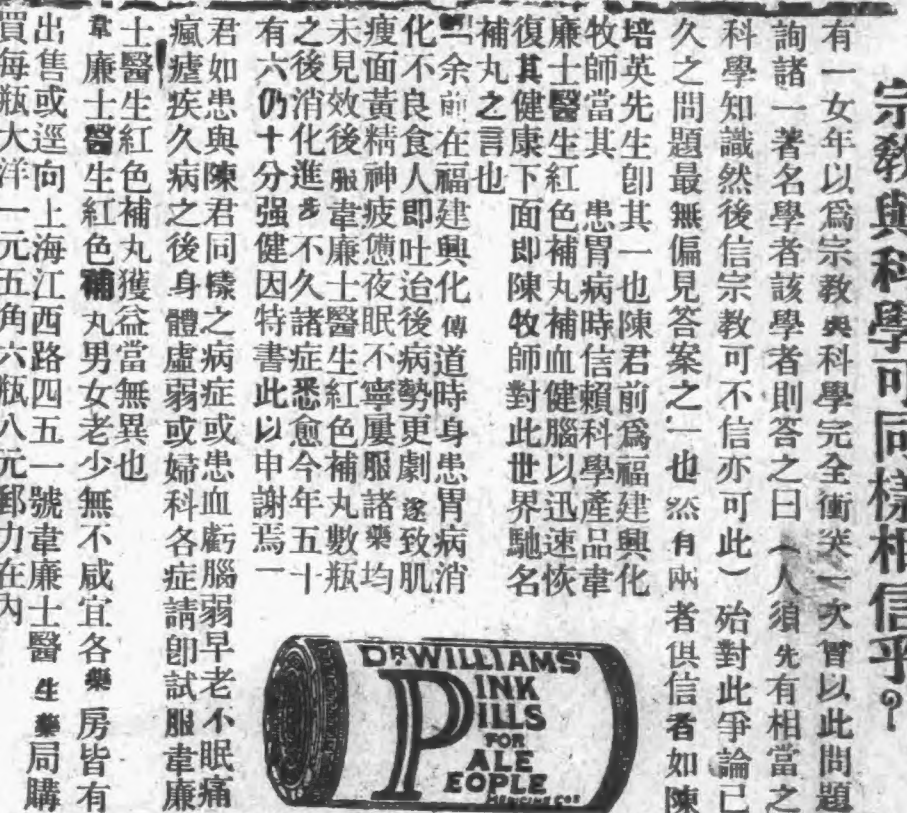 宗教與科學可同樣相信乎?
有一女年以爲宗教與科學完全衝突一次嘗以此問題
詢諸一著名學者該學者則答之曰(人須先有相當之
科學知識然後信宗教可不信亦可此)殆對此爭論已
久之問題最無偏見答案之一也然有兩者俱信者如陳
培英先生卽其一也陳君前爲福建興化
牧師當其患胃病時信賴科學產品韋
廉士醫生紅色補丸補血健腦以迅速恢
復其健康下面即陳牧師對此世界馳名
補丸之言也
余前在福建興化傳道時身患胃病消
化不良食人即吐迨後病勢更劇遂致肌
瘦面黃精神疲憊夜眠不寧屢服諸藥均
未見效後服韋廉士醫生紅色補丸數瓶
之後消化進步不久諸症悉愈今年五十
有六仍十分强健因特書此以申謝焉
君如患與陳君同樣之病症或患血虧腦弱早老不眠痛
瘋瘧疾久病之後身體虛弱或婦科各症請卽試服韋廉
士醫生紅色補丸獲益當無異也
韋廉士醫生紅色補丸男女老少無不咸宜各藥房皆有
出售或逕向上海江西路四五一號韋廉士醫生藥局購
買每瓶大洋一元五角六瓶八元郵力在內
DR WILLIAMS'
PINK
PILLS
FOR
PALE
PEOPLE
MEDICINE Co